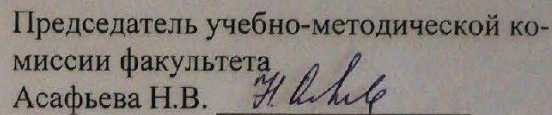 Председатель учебно-методической ко-
миссии факультета
Асафьева Н.В.